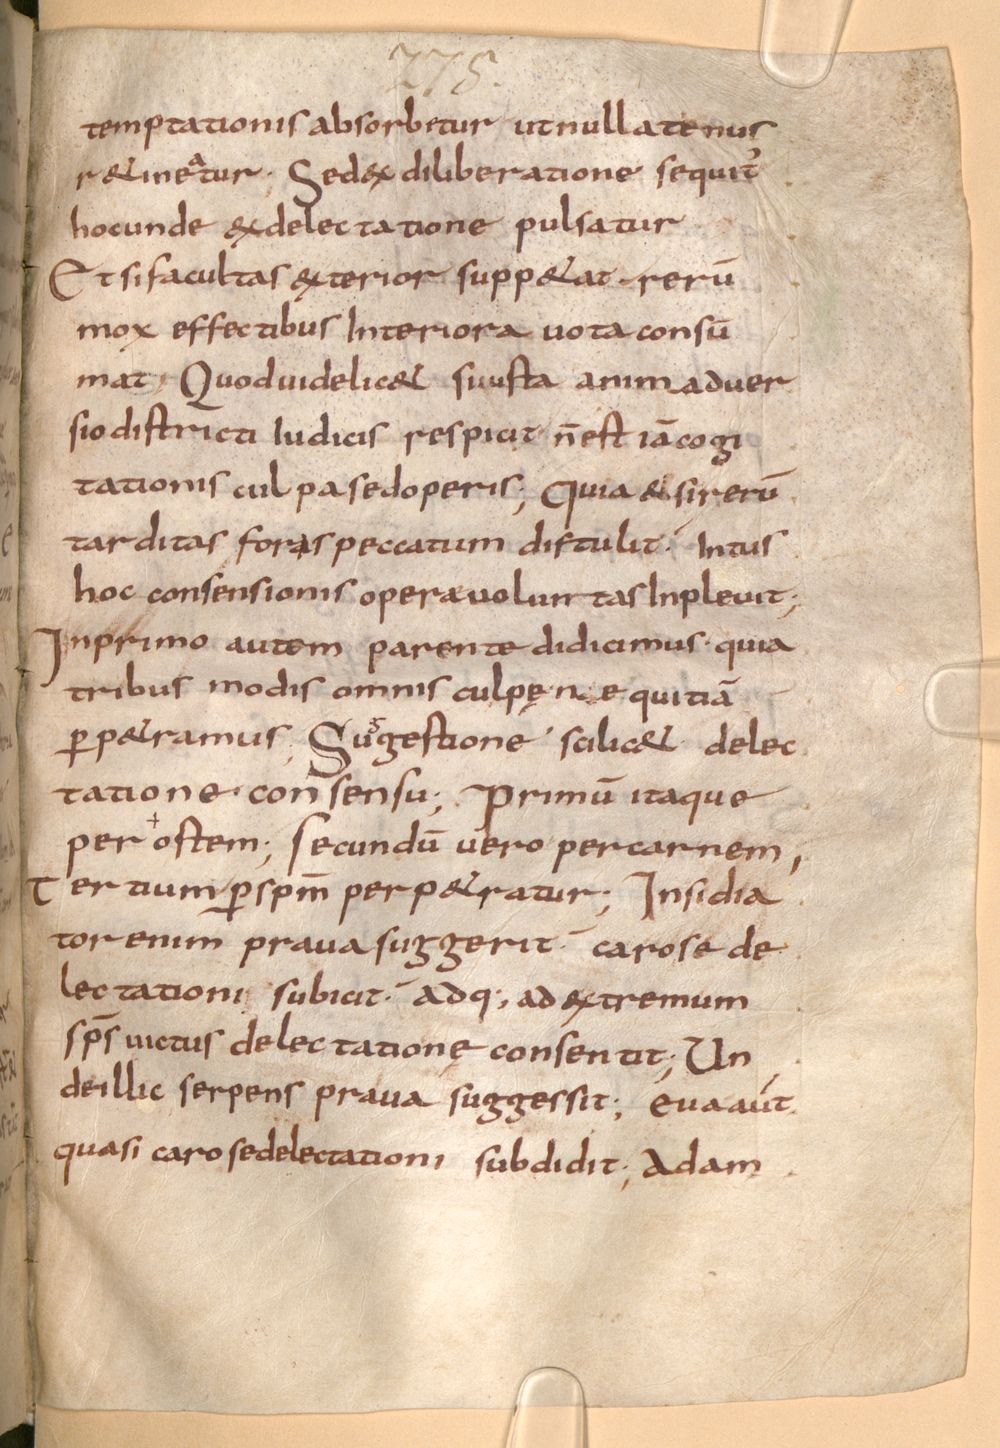 275.
temptationis absorbetur ut nullatenus
r&ineatur. Sed ex diliberatione sequit᷑
hoc unde ex delectatione pulsatur
Et si facultas exterior supp&at rerū
mox effectibus Interiora uota consū
mat; Quod uidelic& si iusta animaduer
sio districti Iudicis respicit n̄ est iā cogi
tationis culpa sed operis; Quia & si rerū
tarditas foras peccatum distulit. Intus
hoc consensionis opera uoluntas Inpleuit;
In primo autem parente didicimus. quia
tribus modis omnis culpę nequitiā
ꝑp&ramus; Suggestione scilic& delec
tatione. consensu; Primū itaque
per ostem; Secundū uero per carnem,
Tertium ꝑ spm̄ perp&ratur; Insidia
tor enim praua suggerit. caro se de
lectationi subicit. Adq; ad extremum
sp̄s uictus delectatione consentit; Un
de illic serpens praua suggessit; Eua aūt
quasi caro se delectationi subdidit; Adam